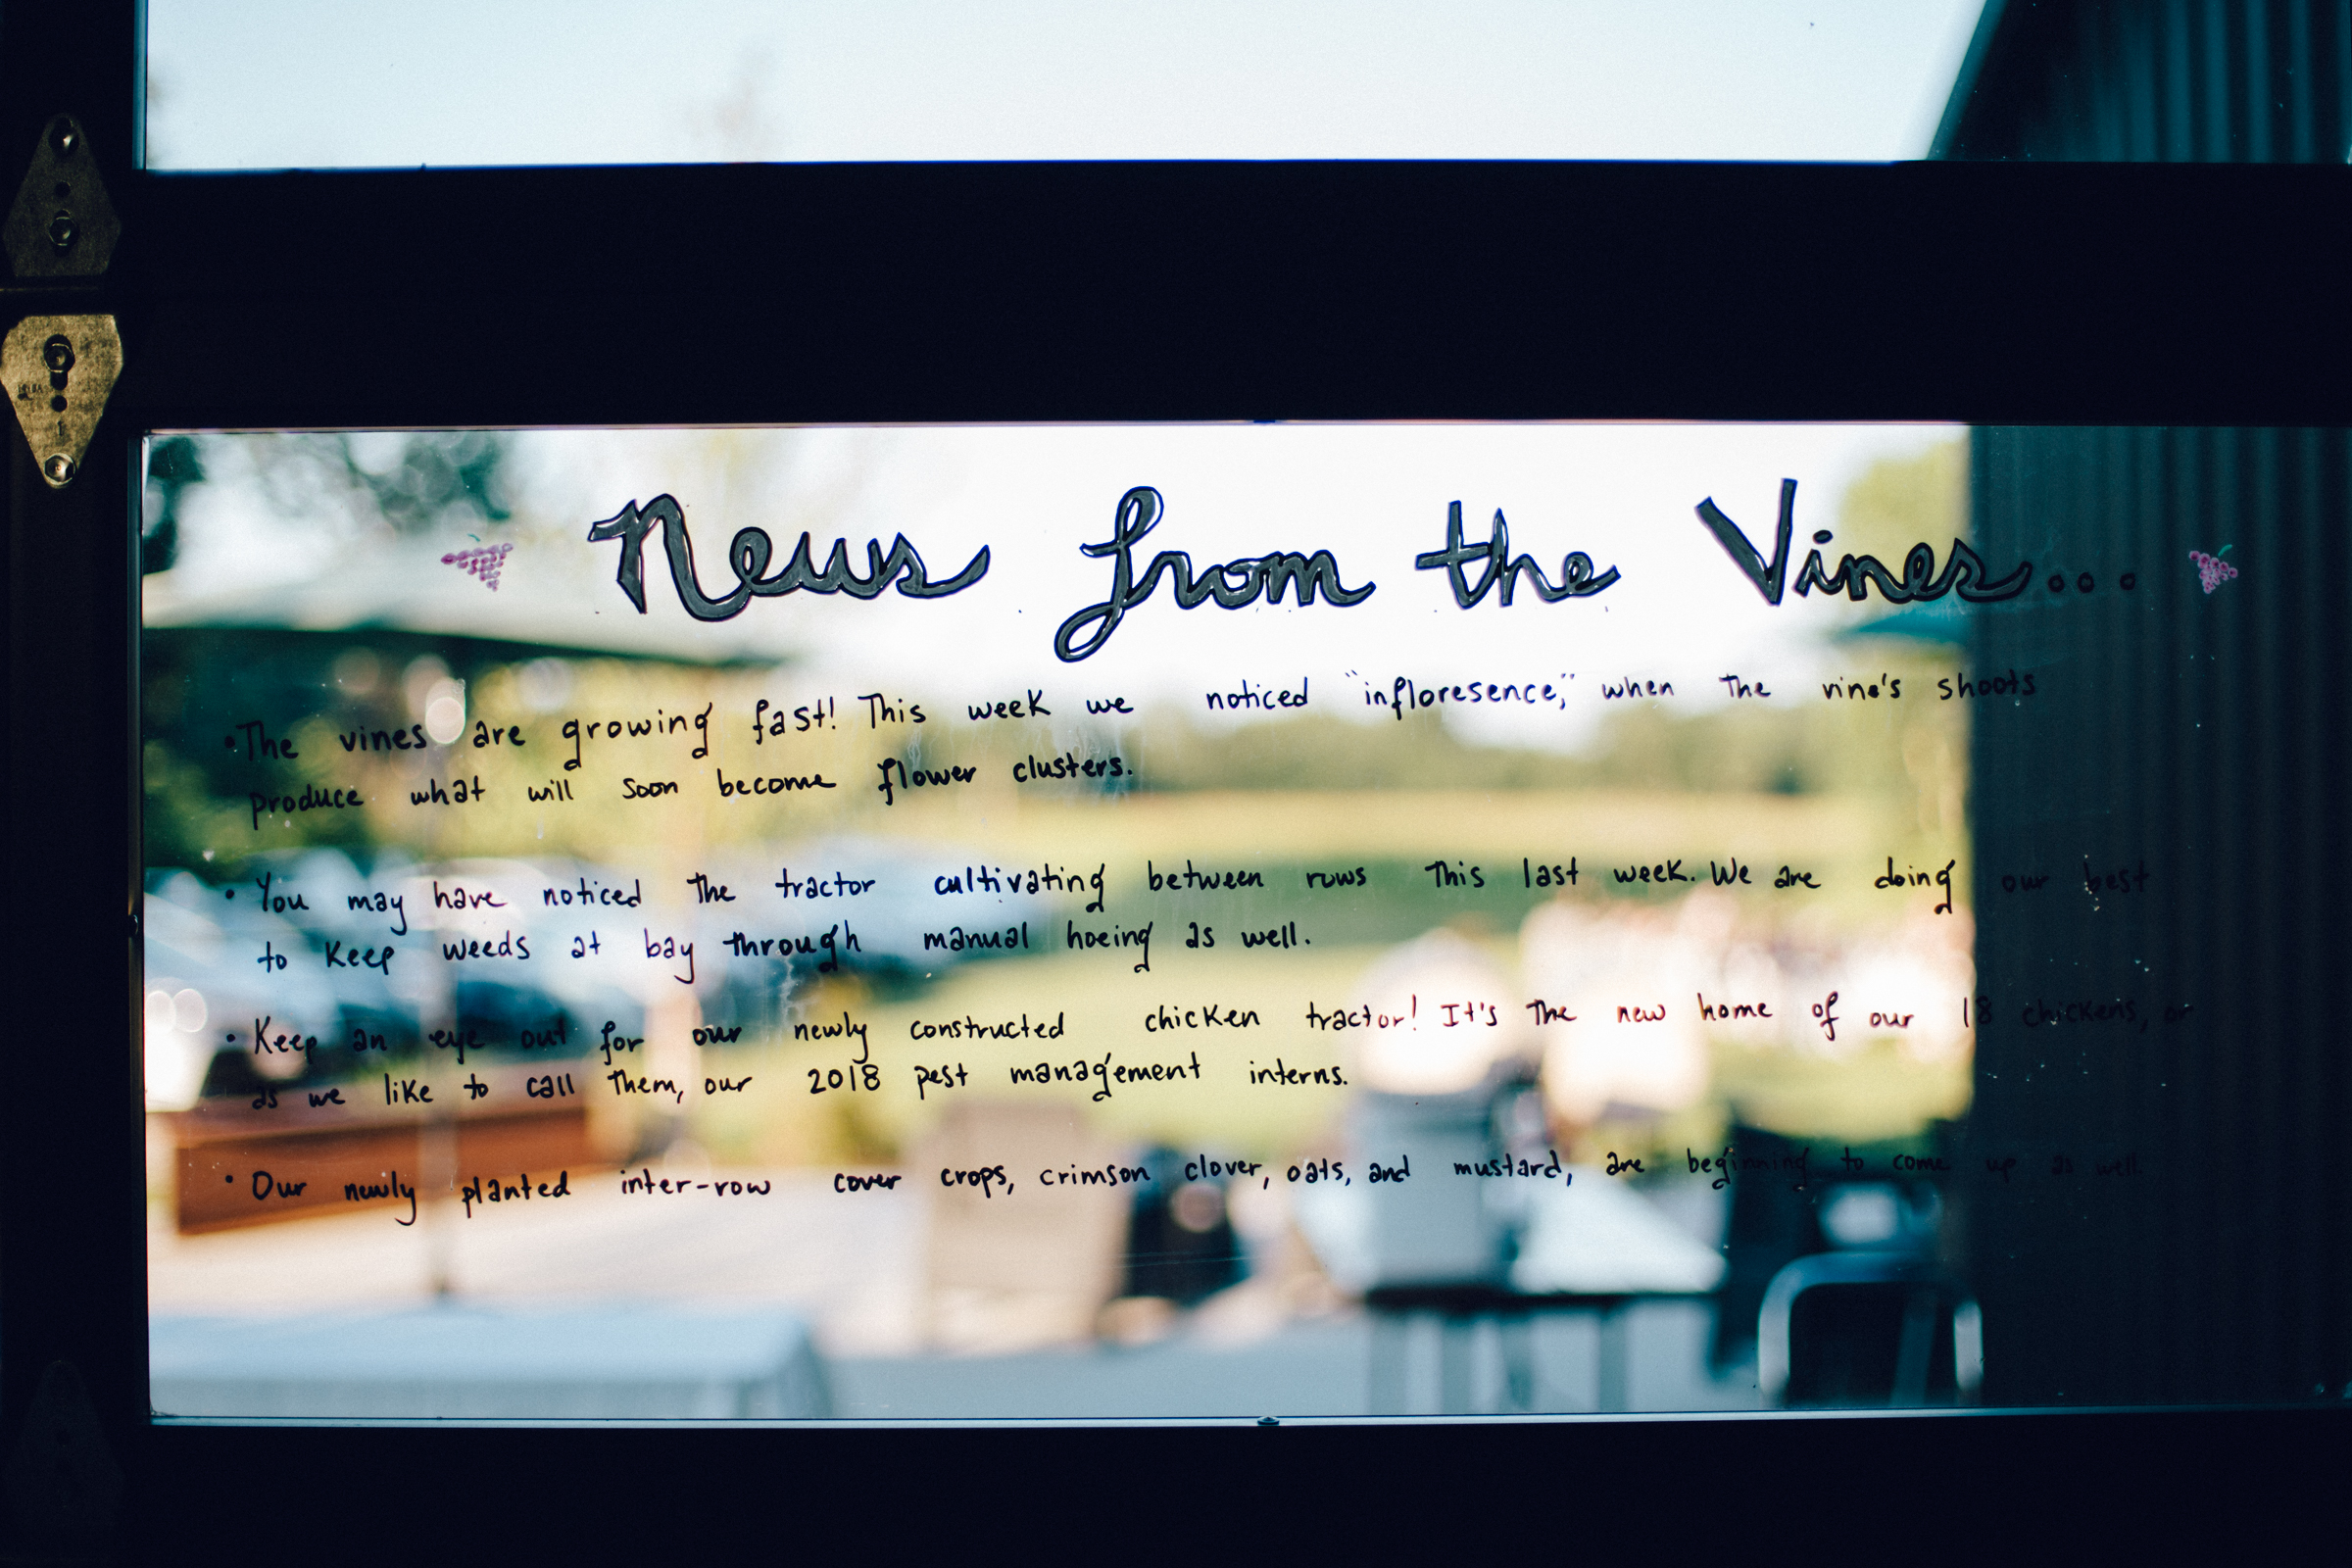 News from the Vines...
•The vines are growing fast! This week we noticed "infloresence," when the vine's shoots
produce what will soon become flower clusters.
• You may have noticed the tractor cultivating between rows this last week. We are doing our best
to keep weeds at bay through manual hoeing as well.
• Keep an eye out for our newly constructed chicken tractor! It's the new home of our 18 chickens, or
as we like to call them, our 2018 pest management interns.
• Our newly planted inter-row cover crops, crimson clover, oats, and mustard, are beginning to come up as well.